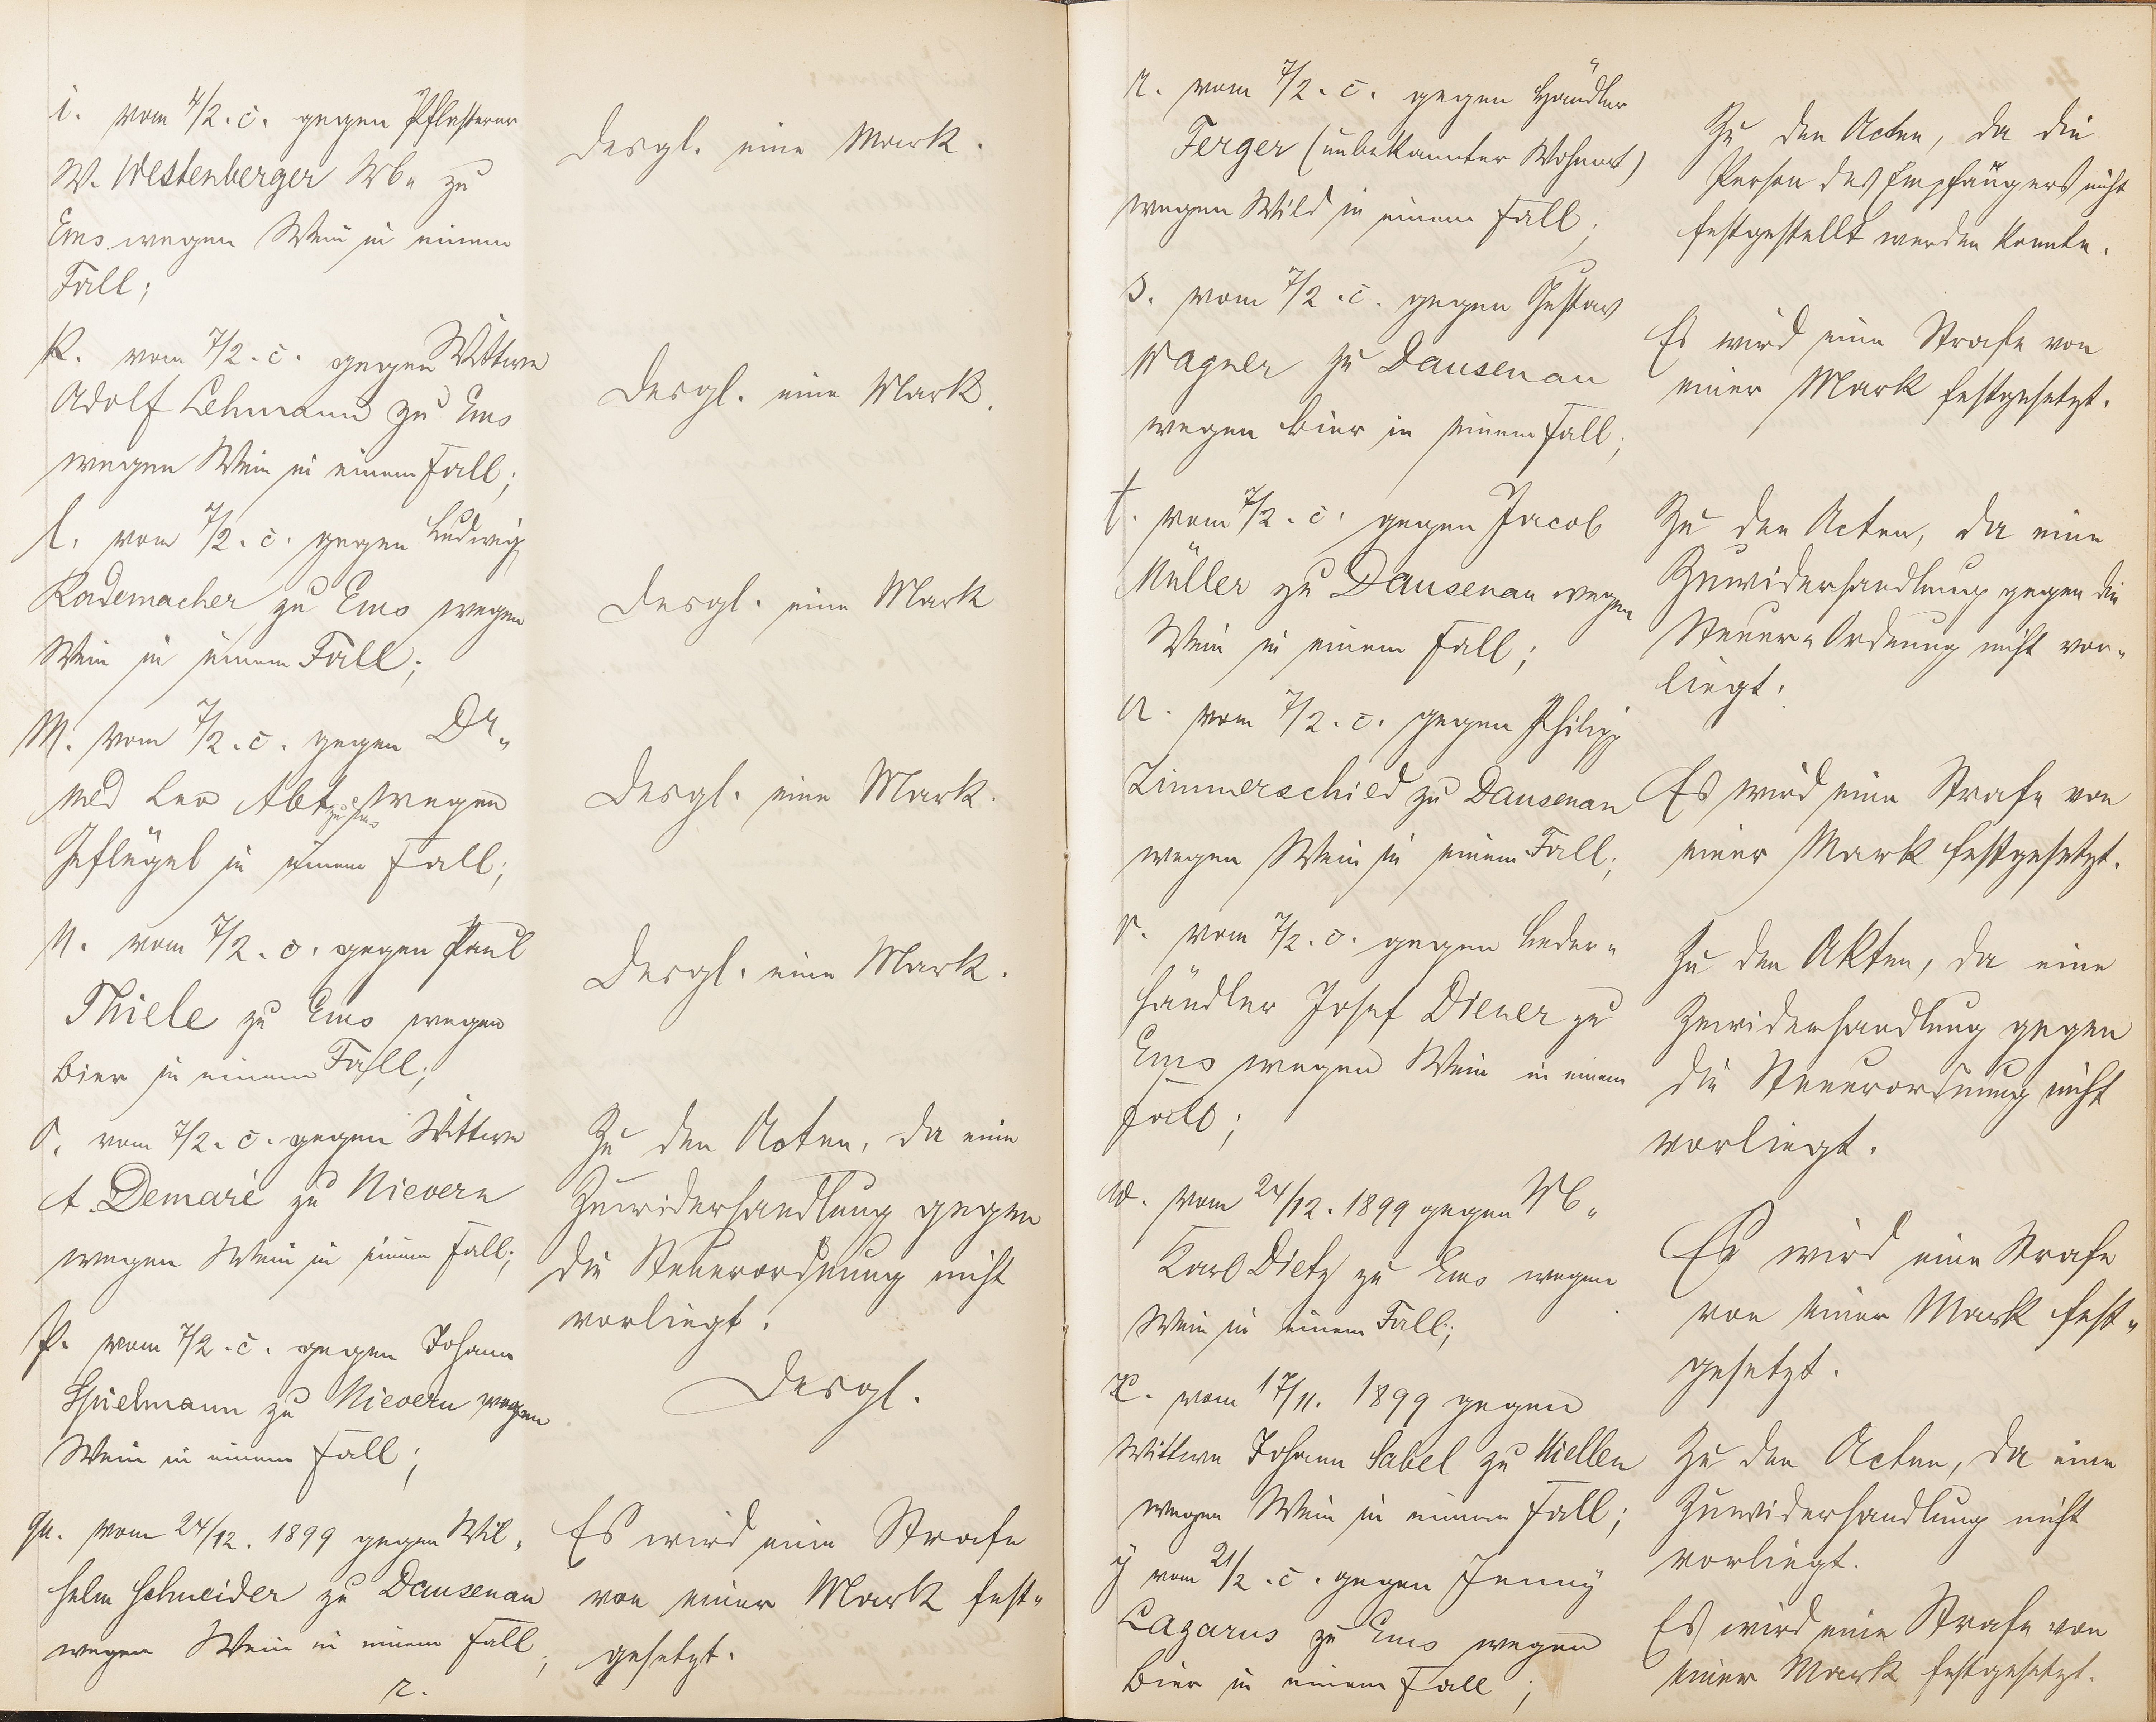 i. vom 4/2. c. gegen Pflasterer
W. Westenberger Wb. zu
Ems wegen Wein in einem
Fall;
Desgl. eine Mark.
k. vom 7/2. c. gegen Wittwe
Adolf Lehmann zu Ems
wegen Wein in einem Fall;
Desgl. eine Mark.
l. vom 7/2. c. gegen Ludwig
Rademacher zu Ems wegen
Wein in einem Fall;
Desgl. eine Mark
m. vom 7/2. c. gegen Dr.
med Leo Abt zu Ems wegen
Geflügel in einem Fall;
Desgl. eine Mark.
n. vom 7/2. c. gegen Paul
Thiele zu Ems wegen
Bier in einem Fall;
Desgl. eine Mark.
o. vom 7/2. c. gegen Wittwe
A. Demaré zu Nievern
wegen Wein in einem Fall;
Zu den Acten, da eine
Zuwiderhandlung gegen
die Steuerordnung nicht
vorliegt.
p. vom 7/2. c. gegen Johann
Spielmann zu Nievern wegen
Wein in einem Fall;
Desgl.
qu. vom 24/12. 1899 gegen Wil-
helm Schneider zu Dausenau
wegen Wein in einem Fall;
Es wird eine Strafe
von einer Mark fest-
gesetzt.
r.
r. vom 7/2. c. gegen Händler
Ferger (unbekannter Wohnort)
wegen Wild in einem Fall;
Zu den Acten, da die
Person des Empfängers nicht
festgestellt werden konnte.
s. vom 7/2. c. gegen Gustav
Wagner zu Dausenau
wegen Bier in einem Fall;
Es wird eine Strafe von
einer Mark festgesetzt.
t. vom 7/2. c. gegen Jacob
Müller zu Dausenau wegen
Wein in einem Fall;
Zu den Acten, da eine
Zuwiderhandlung gegen die
Steuer-Ordnung nicht vor-
liegt.
u. vom 7/2. c. gegen Philipp
Zimmerschied zu Dausenau
wegen Wein in einem Fall;
Es wird eine Strafe von
einer Mark festgesetzt.
v. vom 7/2. c. gegen Leder-
händler Josef Diener zu
Ems wegen Wein in einem
Fall;
Zu den Akten, da eine
Zuwiderhandlung gegen
die Steuerordnung nicht
vorliegt.
w. vom 24/12. 1899 gegen Wb.
Karl Dietz zu Ems wegen
Wein in einem Fall;
Es wird eine Strafe
von einer Mark fest-
gesetzt.
x. vom 17/11. 1899 gegen
Wittwe Johann Sabel zu Miellen
wegen Wein in einem Fall;
Zu den Acten, da eine
Zuwiderhandlung nicht
vorliegt.
y vom 21/2. c. gegen Jenny
Lazarus zu Ems wegen
Bier in einem Fall;
Es wird eine Strafe von
einer Mark festgesetzt.